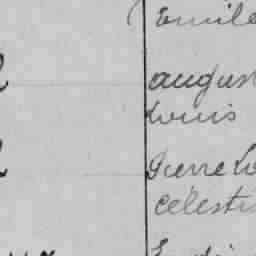 Emile
august
Louis
Pierre Lo
Celesti